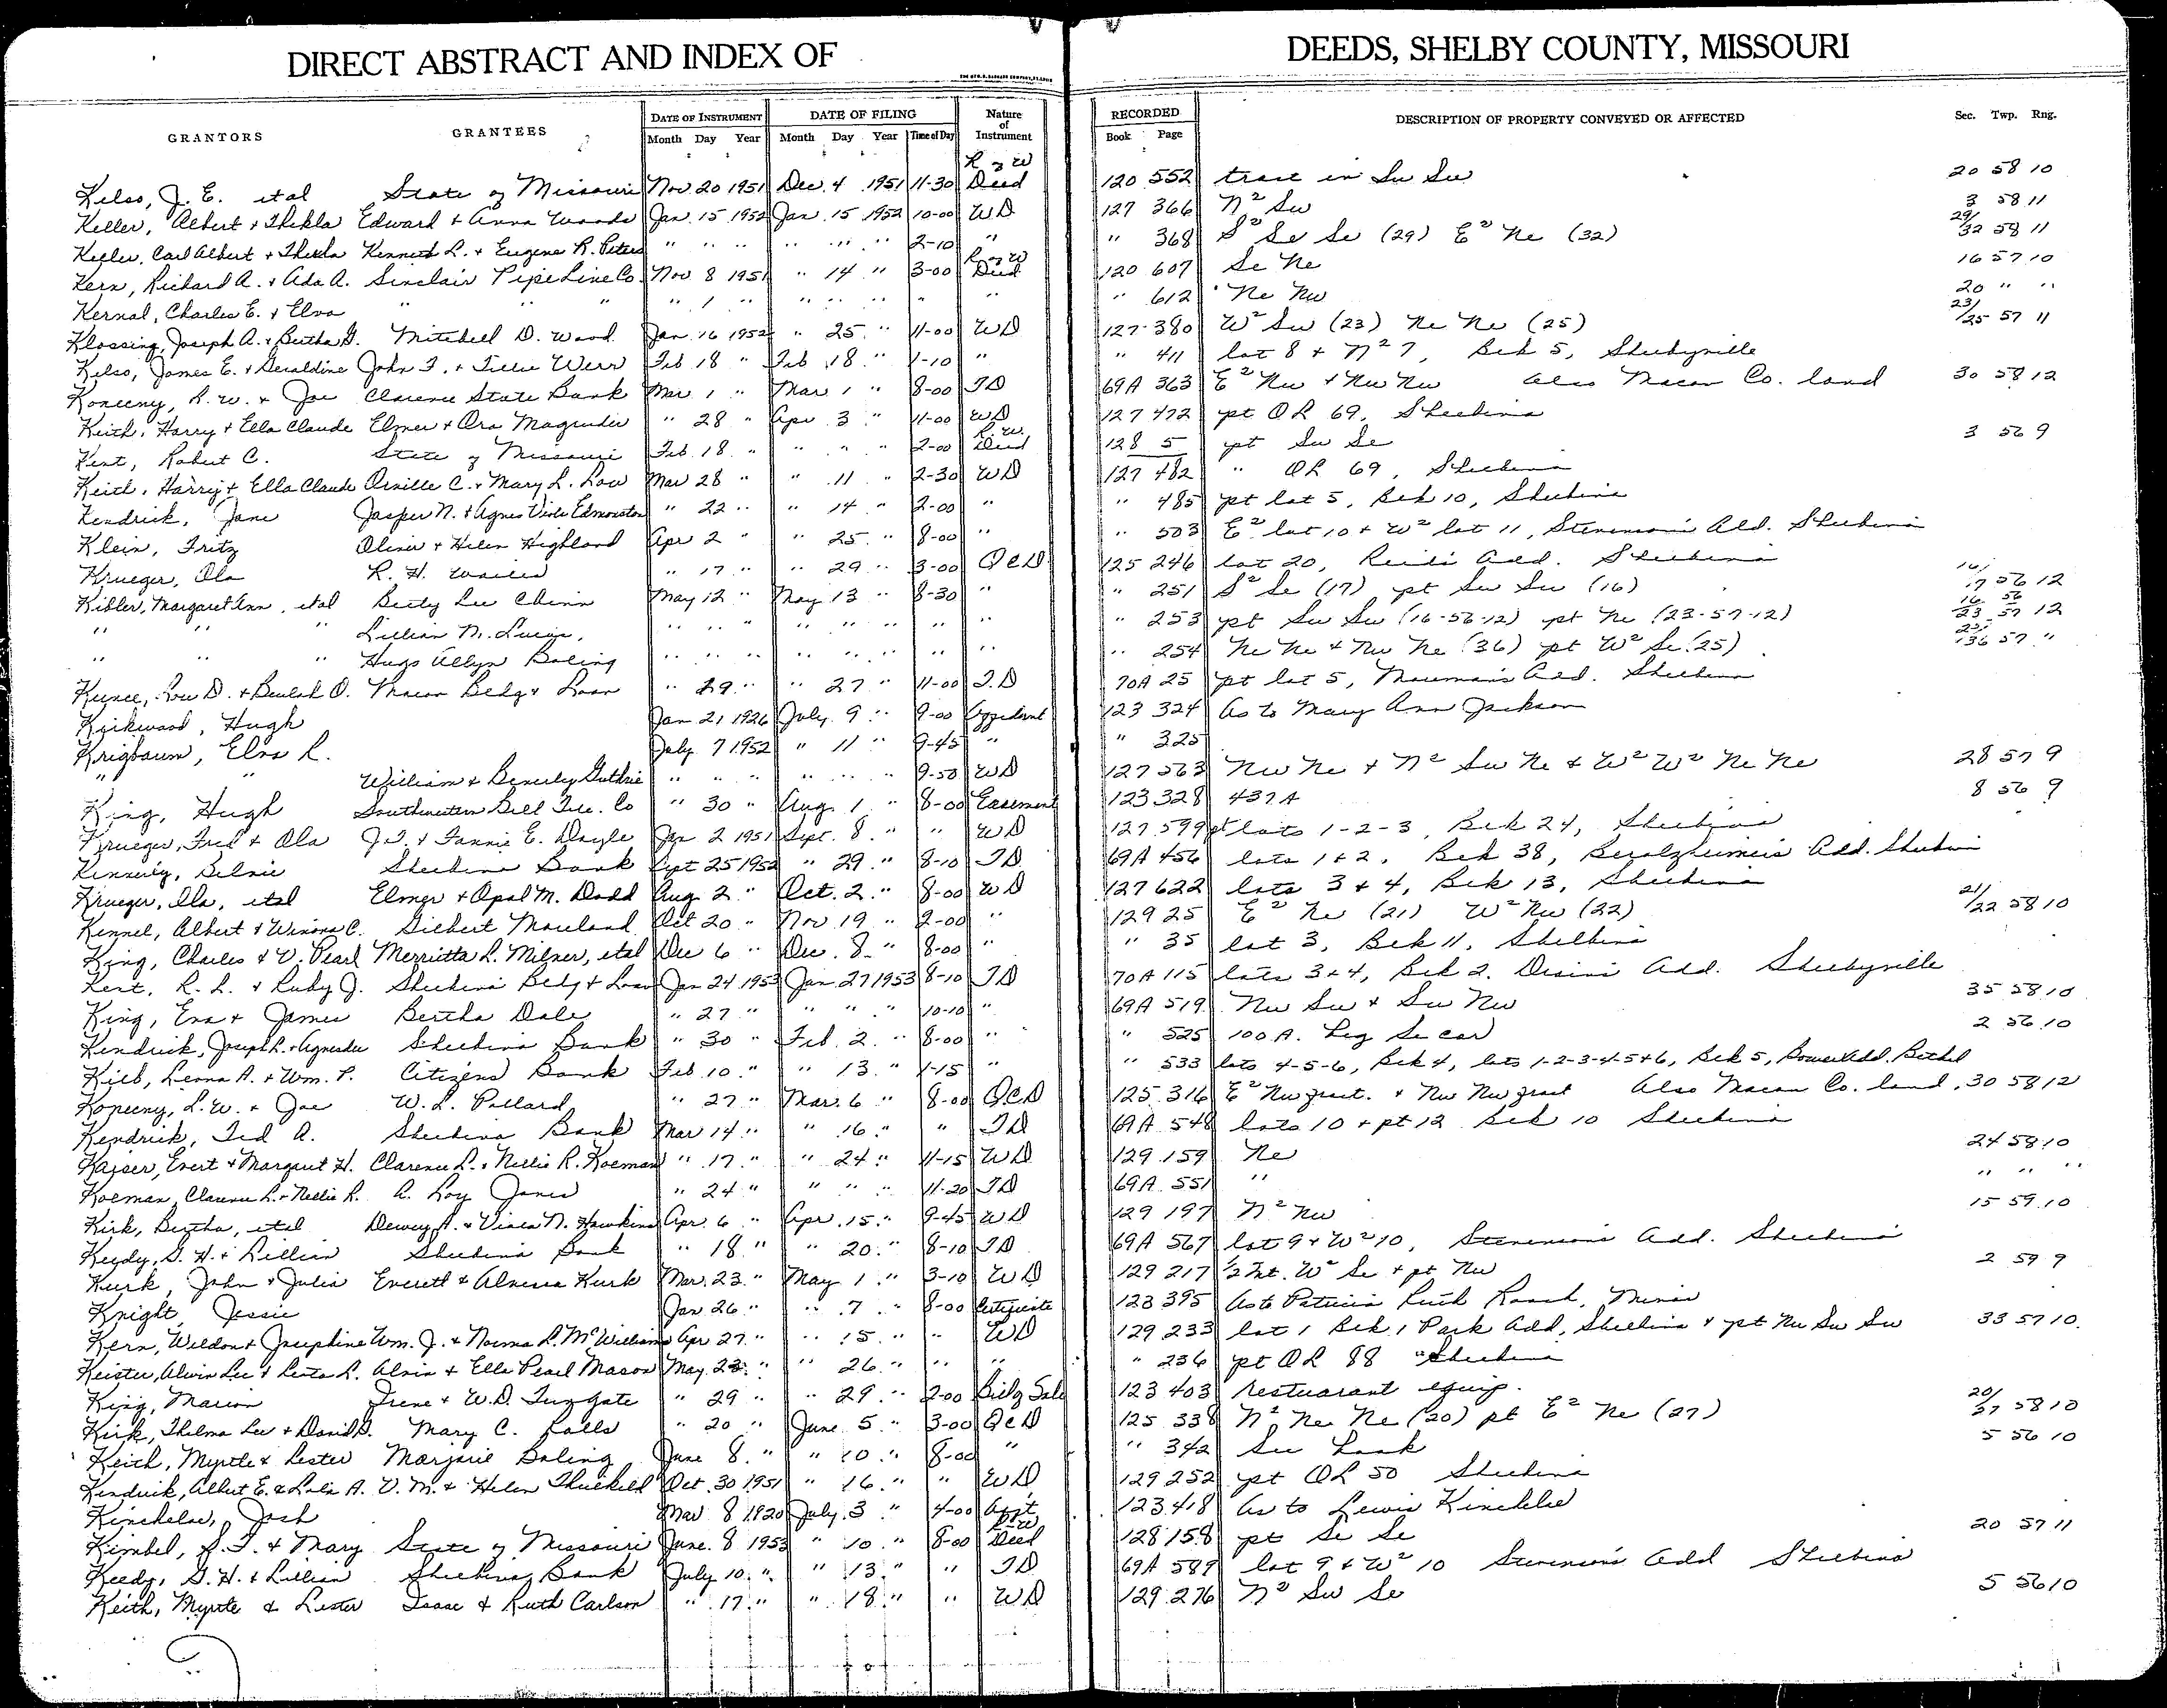 DIRECT ABSTRACT AND INDEX OF DEEDS, SHELBY COUNTY, MISSOURI
GRANTORS GRANTEES DATE OF INSTRUMENT DATE OF FILING Nature of Instrument RECORDED DESCRIPTION OF PROPERTY CONVEYED OR AFFECTED Sec. Twp. Rng.
Month Day Year Month Day Year Time of Day Book Page
Kelso, J. E. etal State of Missouri Nov. 20 1951 Dec. 4 1951 11-30 R of W Deed 120 552 in Sw Sw 20 58 10
Keller, Albert + Thekla Edward + Anna Woods Jan. 15 1952 Jan. 15 1952 10-00 WD 127 366 N² Sw 3 58 11
Keller, Carl Albert + Thekla Kenneth L. + Eugene R. Peters " " " " " " 2-10 " " 368 S² Se Se (29) E² Ne (32) 29/32 58 11
Kern, Richard A. + Ada A. Sinclair Pipe Line Co. Nov 8 1951 " 14 " 3-00 R of W Deed 120 607 Se Ne 16 57 10
Kernal, Charles E. + Elva " " " " 1 " " " " " " " 612 Ne Nw 20 " "
Klossing, Joseph A. + Bertha G. Mitchell D. Wood Jan 16 1952 " 25 " 11-00 WD 127 380 W² Sw (23) Ne Ne (25) 23/25 57 11
Kelso, James E. + Geraldine John F. + Tillie Werr Feb 18 " Feb 18 " 1-10 " " 411 lot 8 + N² 7, Blk 5, Shelbyville
Konecny, L. W. + Joe Clarence State Bank Mar 1 " Mar 1 " 8-00 TD 69A 363 E² Nw + Nw Nw Also Macon Co. land 30 58 12
Keith, Harry + Ella Claude Elmer + Ora Magruder " 28 " Apr 3 " 11-00 WD 127 472 pt OL 69, Shelbina
Kent, Robert C. State of Missouri Feb. 18 " " " " 2-00 R. W. Deed 128 5 pt Sw Se 3 56 9
Keith, Harry + Ella Claude Orville C. + Mary L. Low Mar 28 " " 11 " 2-30 WD 127 482 " OL 69, Shelbina
Kendrick, Jane Jasper N. + Agnes Viola Edmonston " 22 " " 14 " 2-00 " " 485 pt lot 5, Blk 10, Shelbina
Klein, Fritz Oliver + Helen Highland Apr 2 " " 25 " 8-00 " " 503 E² lot 10 + W² lot 11, Stevenson's Add. Shelbina
Krueger, Ola R. H. " 17 " " 29 " 3-00 QCD 125 246 lot 20, Add. Shelbina
Kibler, Margaret Ann, etal Betty Lee Chinn May 12 " May 13 " 8-30 " " 251 S² Se (17) pt Sw Sw (16) 16/17 56 12
" " " Lillian M. " " " " " " " " " 253 pt Sw Sw (16-56-12) pt Ne (23-57-12) 16 56 23 57 12
" " " Hugo Allyn Boling " " " " " " " " " 254 Ne Ne + Nw Ne (36) pt W² Se (25) 25/36 57 "
Kunce, Lou D. + Beulah O. Macon Bldg + Loan " 29 " " 27 " 11-00 T.D 70A 25 pt lot 5, Add. Shelbina
Kirkwood, Hugh Jan 21 1926 July 9 " 9-00 Affidavit 123 324 As to Mary Ann Jackson
Krigbaum, Elva L. July 7 1952 " 11 " 9-45 " " 325
" " William + Beverly Guthrie " " " " " " 9-50 WD 127 563 Nw Ne + N² Sw Ne + W² W² Ne Ne 28 57 9
King, Hugh Southwestern Bell Tele. Co " 30 " Aug 1 " 8-00 Easement 123 328 437A 8 56 9
Krueger, Fred + Ola J. T. + Fannie E. Dayle Jan 2 1951 Sept. 8 " " WD 127 599 pt lots 1-2-3, Blk 24, Shelbina
Kennerly, Shelbina Bank Sept 25 1952 " 29 " 8-10 TD 69A 456 lots 1 + 2, Blk 38, Add. Shelbina
Krueger, Ola, etal Elmer + Opal M. Dodd Aug. 2 " Oct. 2 " 8-00 WD 127 622 lots 3 + 4, Blk 13, Shelbina
Kennel, Albert + Winona C. Gilbert Moreland Oct 20 " Nov 19 " 2-00 " 129 25 E² Ne (21) W² Nw (22) 21/22 58 10
King, Charles + V. Pearl Merritta L. Milner, etal Dec 6 " Dec. 8 " 8-00 " " 35 lot 3, Blk 11, Shelbina
Kent, R. L. + Ruby J. Shelbina Bldg + Loan Jan 24 1953 Jan. 27 1953 8-10 TD 70A 115 lots 3 + 4, Blk 2, Add. Shelbyville
King, Eva + James Bertha Dale " 27 " " " " 10-10 " 69A 519 Nw Sw + Sw Nw 35 58 10
Kendrick, Joseph L. + Agnes Shelbina Bank " 30 " Feb. 2 " 8-00 " " 525 100 A. Beg Se cor 2 56 10
Kilb, Leona A. + Wm. P. Citizens Bank Feb 10 " " 13 " 1-15 " " 533 lots 4-5-6, Blk 4, lots 1-2-3-4-5+6, Blk 5, Bower Add. Bethel
Konecny, L. W. + Joe W. L. Pollard " 27 " Mar. 6 " 8-00 QCD 125 316 E² Nw fract. + Nw Nw fract Also Macon Co. land, 30 58 12
Kendrick, Ted A. Shelbina Bank Mar 14 " " 16 " " TD 69A 548 lots 10 + pt 12 Blk 10 Shelbina
Kaiser, Evert + Margaret H. Clarence L. + Nellie R. Koeman " 17 " " 24 " 11-15 WD 129 159 Ne 24 58 10
Koeman, Clarence L. + Nellie R. A. Roy Jones " 24 " " " " 11-20 TD 69A 551 " " " "
Kirk, Bertha, etal Dewey A. + Viola N. Hawkins Apr. 6 " Apr. 15 " 9-45 WD 129 197 N² Nw 15 59 10
Keedy, G. H. + Lillian Shelbina Bank " 18 " " 20 " 8-10 TD 69A 567 lot 9 + W² 10, Stevenson's Add. Shelbina
Kurk, John + Julia Everett + Alversa Kurk Mar. 23 " May 1 " 3-10 WD 129 217 ½ Int. W² Se + pt Nw 2 59 9
Knight, Jessie Jan 26 " " 7 " 8-00 Certificate 123 395 As to Patricia Ruth Roach, Minor
Kern, Weldon + Josephine Wm. J. + Norma L. McWilliams Apr 27 " " 15 " " WD 129 233 lot 1 Blk 1 Park Add, Shelbina + pt Nw Sw Sw 33 57 10
Keister, Alvin Lee + Leota L. Alvin + Ella Pearl Mason May 23 " " 26 " " " " 236 pt OL 88 Shelbina
King, Marion Irene + W. D. " 29 " " 29 " 2-00 Bill of Sale 123 403 restuarant equip.
Kirk, Thelma Lee + David D. Mary C. Falls " 20 " June 5 " 3-00 QCD 125 338 N² Ne Ne (20) pt E² Ne (27) 20/27 58 10
Keith, Myrtle + Lester Marjorie Boling June 8 " " 10 " 8-00 " " 342 See Book 5 56 10
Kendrick, Albert E. + Lola A. V. M. + Helen Thiekeld Oct. 30 1951 " 16 " " WD 129 252 pt OL 50 Shelbina
Kincheloe, Josh Mar 8 1920 July 3 " 4-00 Afft 123 418 As to Lewis Kincheloe
Kimbel, J. T. + Mary State of Missouri June 8 1953 " 10 " 8-00 R-W Deed 128 158 pt Se Se 20 57 11
Keedy, G. H. + Lillian Shelbina Bank July 10 " " 13 " " TD 69A 589 lot 9 + W² 10 Stevenson's Add Shelbina
Keith, Myrtle & Lester Isaac & Ruth Carlson " 17 " " 18 " " WD 129 276 N² Sw Se 5 56 10